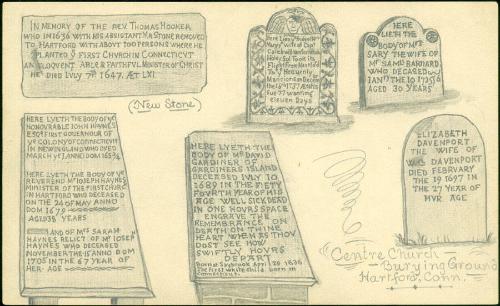 IN MEMORY OF THE REV. THOMAS HOOKER
WHO IN 1636 WITH HIS ASSISTANT MR STONE REMOVED
TO HARTFORD WITH ABOUT 100 PERSONS WHERE HE
PLANTED Ye FIRST CHURCH IN CONNECTICUT
AN ELOQUENT ABLE & FAITHFUL MINISTER OF CHRIST
HE DIED JULY 7TH 1647. ÆT LXI
(New Stone)
Here Lies ye Body of Mrs
Mary wife of Capt
Caldwell whose
Holy Soul Took its
Flight from Hartford
To ye Heavenly
Mansions on December
the 1737. Ætatis
Suæ 77 wanting
eleven Days
HERE
LIETH THE
BODY OF MRS
SARY THE WIFE OF
MR SAMLL BARNARD
WHO DECEASED
JANry THE 10 1725/6
AGED 30 YEARS
HERE LYETH THE BODY OF Ye
HONOURABLE JOHN HAYNES
ESQr FIRST GOVERNOUR OF
Ye COLONY OF CONNECTICUT
IN NEW INGLAND WHO DYED
MARCH Ye I ANNO DOM 1653/4
HERE LYETH THE BODY OF Ye
REVEREND MR IOSEPH HAYNES
MINISTER OF THE FIRST CHURCH
IN HARTFORD WHO DECEASED
ON THE 24 OF MAY ANNO
DOM 1679
AGED 38 YEARS
AND OF MRS SARAH
HAYNES RELICT OF MR IOSEPH
HAYNES WHO DECEASED
NOVEMBER THE 15 ANNO DOM
1705 IN THE 67 YEAR OF
HER AGE
HERE LYETH THE
BODY OF MR DAVID
GARDINER OF
GARDINERS ISLAND
DECEASED IVLY 10
1689 IN THE FIFTY
FOVRTH YEAR OF HIS
AGE WELL SICK DEAD
IN ONE HOVRS SPACE
ENGRAVE THE
REMEMBRANCE ON
DEATH ON THINE
HEART WHEN AS THOV
DOST SEE HOW
SWIFTLY HOVRS
DEPART
Born at Saybrook April 29 1636
The first white child born in
Connecticut.
ELIZABETH
DAVENPORT
THE WIFE OF
DAVENPORT
DIED FEBRUARY
THE 19 1697 IN
THE 27 YEAR OF
HVR AGE
"Centre Church
Burying Ground"
Hartford. Conn.